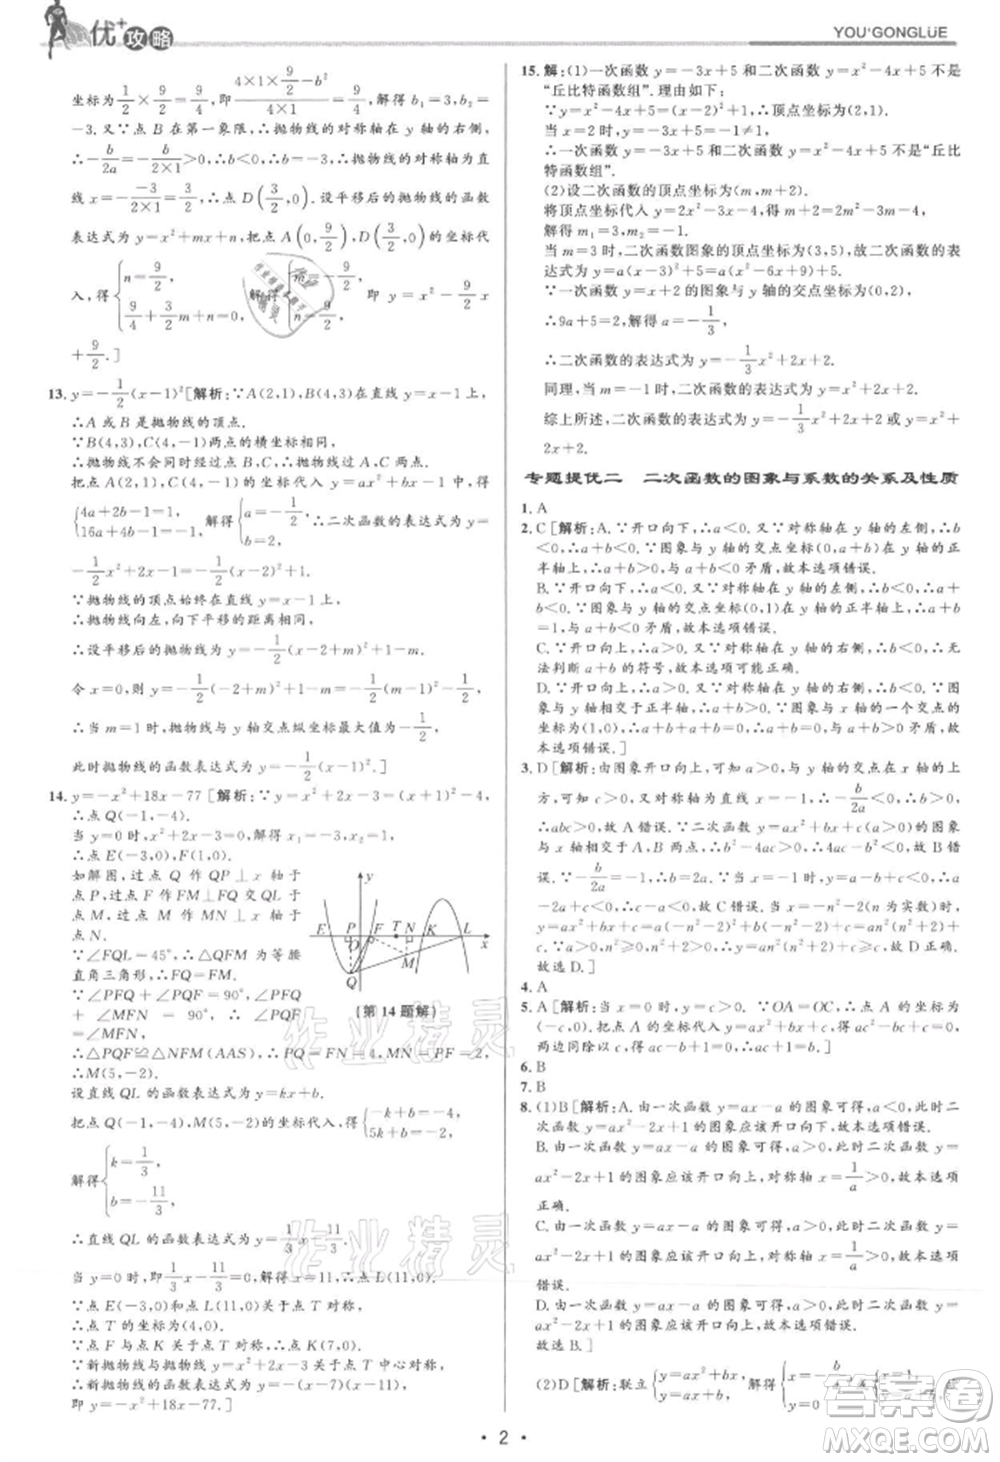 优+攻略
YOU'GONGLÜE
坐标为1/2×9/2=9/4,即(4×1×9/2-b²)/(4×1)=9/4,解得b₁=3,b₂=
-3.又∵点B在第一象限,∴抛物线的对称轴在y轴的右侧,
∴-b/2a=-b/(2×1)>0,∴b<0,∴b=-3,∴抛物线的对称轴为直
线x=3/(2×1)=3/2,∴点D(3/2,0).设平移后的抛物线的函数
表达式为y=x²+mx+n,把点A(0,9/2),D(3/2,0)的坐标代
入,得{n=9/2, 9/4+3/2m+n=0, 解得{m=-9/2, n=9/2, 即y=x²-9/2x
+9/2.]
13.y=-1/2(x-1)²[解析:∵A(2,1),B(4,3)在直线y=x-1上,
∴A或B是抛物线的顶点.
∵B(4,3),C(4,-1)两点的横坐标相同,
∴抛物线不会同时经过B,C点,∴抛物线经过A,C两点.
把点C(4,-1),A(2,1)的坐标代入y=ax²+bx-1,得
{4a+2b-1=1, 16a+4b-1=-1, 解得{a=-1/2, b=2, ∴二次函数的表达式为y=
-1/2x²+2x-1.
∵抛物线的顶点始终在直线y=x-1上,
∴抛物线向左、向下平移的距离相同,
∴设平移后的抛物线为y=-1/2(x-2+m)²+1-m,
令x=0,则y=-1/2(-2+m)²+1-m=-1/2(m-1)²-1/2,
∴当m=1时,抛物线与y轴交点纵坐标最大值为-1/2,
此时抛物线的函数表达式为y=-1/2(x-1)².]
14.y=-x²+18x-77[解析:∵y=x²+2x-3=(x+1)²-4,
∴点Q(-1,-4).
当y=0时,即x²+2x-3=0,解得x₁=-3,x₂=1,
∴点E(-3,0),点F(1,0).
如解图,过点Q作QP⊥x轴于
点P,过点F作FM⊥FQ交QL于
点M,过点M作MN⊥x轴于
点N.
∵∠FQL=45°,∴△FQM为等腰
直角三角形,∴FQ=FM.
∵∠PFQ+∠PQF=90°,∠PFQ
+∠MFN=90°,
∴∠PQF=∠MFN,
∴△PQF≌△NFM(AAS),∴PQ=FN=4,MN=PF=2,
∴M(5,-2).
设直线QL的函数表达式为y=kx+b.
把点Q(-1,-4),M(5,-2)的坐标代入,得{-k+b=-4, 5k+b=-2,
解得{k=1/3, b=-11/3,
∴直线QL的函数表达式为y=1/3x-11/3.
当y=0时,即1/3x-11/3=0,解得x=11,∴点L(11,0).
∵点E(-3,0)和点L(11,0)关于点T对称,
∴点T的坐标为(4,0).
∵点F与点K关于点T对称,∴点K(7,0).
∵新抛物线与原抛物线关于点T中心对称,
∴新抛物线的函数表达式为y=-(x-7)(x-11),
即y=-x²+18x-77.]
y
E P O F T N K L x
M
Q
(第14题解)
15.解:(1)一次函数y=-3x+5和二次函数y=x²-4x+5不是
“丘比特函数组”.理由如下:
∵y=x²-4x+5=(x-2)²+1,∴顶点坐标为(2,1).
当x=2时,y=-3x+5=-1≠1,
∴一次函数y=-3x+5和二次函数y=x²-4x+5不是“丘比
特函数组”.
(2)设二次函数的顶点坐标为(m,m+2).
将顶点坐标代入y=2x²-3x-4,得m+2=2m²-3m-4.
解得m₁=3,m₂=-1.
当m=3时,二次函数图象的顶点坐标为(3,5),故二次函数的表
达式为y=a(x-3)²+5=ax²-6ax+9a+5.
∵一次函数y=x+2的图象与y轴的交点坐标为(0,2),
∴9a+5=2,解得a=-1/3,
∴二次函数的表达式为y=-1/3x²+2x+2.
同理,当m=-1时,二次函数的表达式为y=x²+2x+2.
综上所述,二次函数的表达式为y=-1/3x²+2x+2或y=x²+
2x+2.
专题提优二 二次函数的图象与系数的关系及性质
1.A
2.C[解析:A.∵开口向下,∴a<0.又∵对称轴在y轴的左侧,∴b
<0.∵图象与y轴的交点坐标为(0,1)在y轴的正半轴上,
∴a=1,与a<0矛盾,故本选项错误.
B.∵开口向下,∴a<0.又∵对称轴在y轴的左侧,∴b<0,∴a=
1.∵图象与y轴的交点坐标(0,1)在y轴的正半轴上,∴a=
1,与a<0矛盾,故本选项错误.
C.∵开口向上,∴a>0.又∵对称轴在y轴的右侧,∴b<0,∴无
法判断a+b的符号,故本选项可能正确.
D.∵开口向上,∴a>0.又∵对称轴在y轴的左侧,∴b>0,
∴图象与y轴交于正半轴,∴a+b>0.∵图象与x轴的一个交点
的坐标为(1,0),∴a+b+1=0,∴a+b=-1,与a+b>0矛盾,
故本选项错误.]
3.D[解析:由图象开口向上,可知a>0,与y轴的交点在x轴的上
方,可知c>0.又对称轴方程为x=2,∴-b/2a>0,∴b<0,
∴abc<0,故A错误.∵二次函数y=ax²+bx+c(a>0)的图象
与x轴交于A,B两点,∴b²-4ac>0,∴b²>4ac,故B错
误.∵-b/2a=2,∴b=-4a.∵a+b+c=0,∴a-4a+c=0,
∴c=3a,故C错误.∵当x=-n²-2(n为实数)时,y=ax²+bx
+c=a(-n²-2)²-4a(-n²-2)+3a=
an²(n²+8)+15a.∵a>0,n²≥0,n²+8>0,∴y=an²(n²+8)+15a≥c,
故D正确.]
4.A
5.A[解析:∵x=0时,y=c,∴点C的坐标为(0,c).∵OA=OC,∴点A的坐标为(-c,0),∴ac²-bc+c=0,
两边同除以c,得ac-b+1=0,∴ac+1=b.]
6.B
7.B
8.(1)B[解析:A.由一次函数y=ax-a的图象可得a<0,此时二
次函数y=ax²-2x+1的图象应该开口向下,故本选项错误.
B.由一次函数y=ax-a的图象可得a>0,此时二次函数y=
ax²-2x+1的图象应该开口向上,对称轴x=1/a>0,故本选项
正确.
C.由一次函数y=ax-a的图象可得a>0,此时二次函数y=
ax²-2x+1的图象应该开口向上,对称轴x=1/a>0,故本选项
错误.
D.由一次函数y=ax-a的图象可得a<0,此时二次函数y=
ax²-2x+1的图象应该开口向下,故本选项错误.
故选B.]
(2)D[解析:联立{y=ax²+bx, y=ax+b, 解得{x=-b/a, y=0 或{x=1, y=a+b.
作业精灵
作业精灵
答案圈
MXQE.COM
· 2 ·